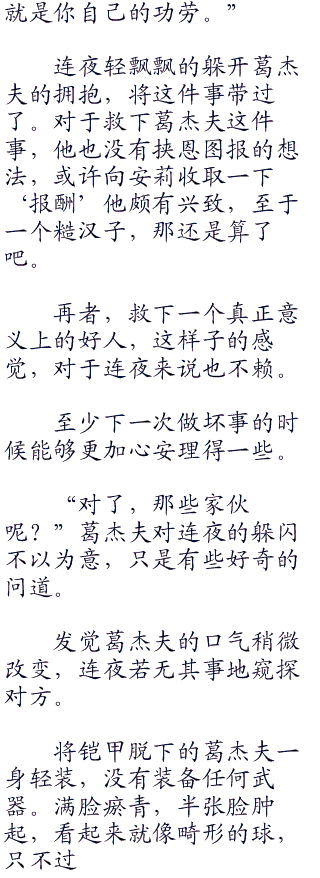 就是你自己的功劳。”
连夜轻飘飘的躲开葛杰
夫的拥抱，将这件事带过
了。对于救下葛杰夫这件
事，他也没有抉恩图报的想
法，或许向安莉收取一下
‘报酬’他颇有兴致，至于
一个糙汉子，那还是算了
吧。
再者，救下一个真正意
义上的好人，这样子的感
觉，对于连夜来说也不赖。
至少下一次做坏事的时
候能够更加心安理得一些。
“对了，那些家伙
呢？”葛杰夫对连夜的躲闪
不以为意，只是有些好奇的
问道。
发觉葛杰夫的口气稍微
改变，连夜若无其事地窥探
对方。
将铠甲脱下的葛杰夫一
身轻装，没有装备任何武
器。满脸瘀青，半张脸肿
起，看起来就像畸形的球，
只不过